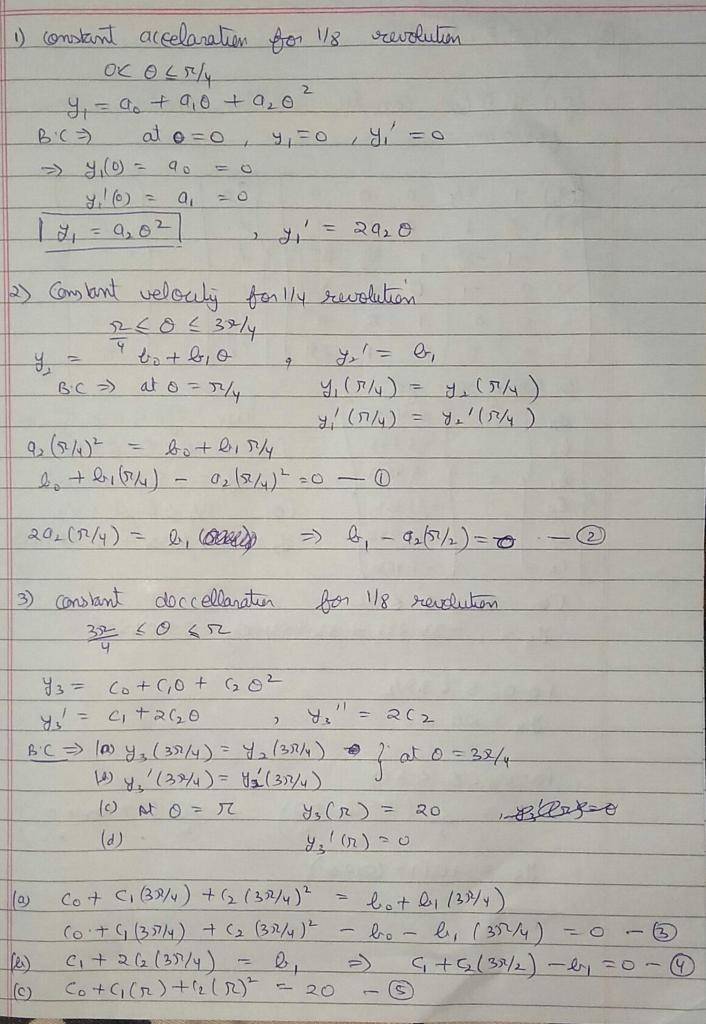 1) constant accelaration for 1/8 revolution
0< θ ≤ π/4
y₁ = a₀ + a₁θ + a₂θ²
B.C ⇒ at θ=0, y₁=0, y₁' =0
⇒ y₁(0) = a₀ = 0
y₁'(0) = a₁ = 0
y₁ = a₂θ² , y₁' = 2a₂θ
2) Constant velocity for 1/4 revolution
π/4 ≤ θ ≤ 3π/4
y₂ = b₀ + b₁θ , y₂' = b₁
B.C ⇒ at θ = π/4 y₁(π/4) = y₂(π/4)
y₁'(π/4) = y₂'(π/4)
a₂(π/4)² = b₀ + b₁ π/4
b₀ + b₁(π/4) - a₂(π/4)² = 0 — ①
2a₂(π/4) = b₁ ⇒ b₁ - a₂(π/2) = 0 — ②
3) constant doccellaration for 1/8 revolution
3π/4 ≤ θ ≤ π
y₃ = c₀ + c₁θ + c₂θ²
y₃' = c₁ + 2c₂θ , y₃'' = 2c₂
B.C ⇒ (a) y₃(3π/4) = y₂(3π/4) } at θ = 3π/4
(b) y₃'(3π/4) = y₂'(3π/4)
(c) At θ = π y₃(π) = 20
(d) y₃'(π) = 0
(a) c₀ + c₁(3π/4) + c₂(3π/4)² = b₀ + b₁(3π/4)
c₀ + c₁(3π/4) + c₂(3π/4)² - b₀ - b₁(3π/4) = 0 — ③
(b) c₁ + 2c₂(3π/4) = b₁ ⇒ c₁ + c₂(3π/2) - b₁ = 0 — ④
(c) c₀ + c₁(π) + c₂(π)² = 20 — ⑤